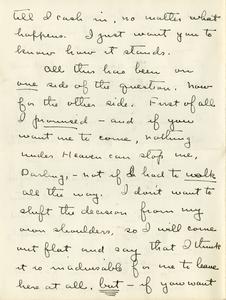 till I cash in, no matter what
happens. I just want you to
know how it stands.
All this has been on
one side of the question. Now
for the other side. First of all
I promised – and if you
want me to come, nothing
under Heaven can stop me,
Darling, – not if I had to walk
all the way. I don't want to
shift the decision from my
own shoulders, so I will come
out flat and say that I think
it so inadvisable for me to leave
here at all, but – if you want